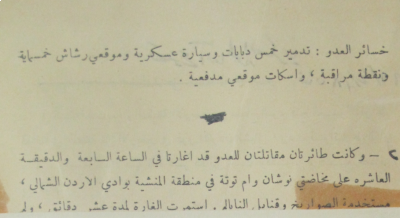 خسائر العدو : تدمير خمس دبابات وسيارة عسكرية وموقعي رشاش خمسماية
ونقطة مراقبة ، واسكات موقعي مدفعية .
٢ – وكانت طائرتان مقاتلتان للعدو قد اغارتا في الساعة السابعة والدقيقة
العاشره على مخاضتي نوشان وام توتة في منطقة المنشية بوادي الاردن الشمالي ،
مستخدمة الصواريخ وقنابل النابالم . استمرت الغارة لمدة عشر دقائق ، ولم